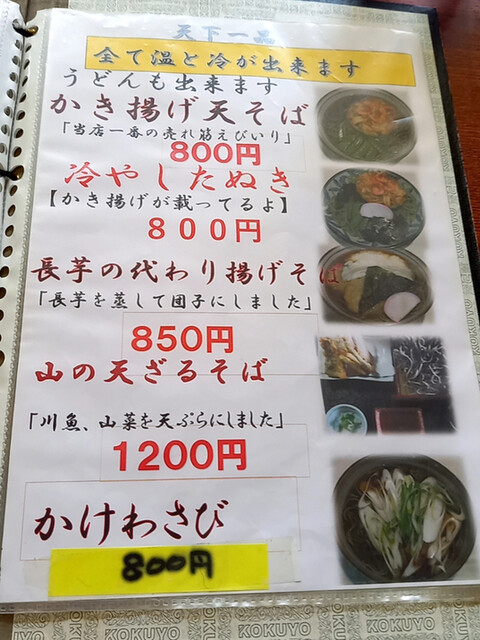 天下一品
全て温と冷が出来ます
うどんも出来ます
かき揚げ天そば
「当店一番の売れ筋えびいり」
800円
冷やしたぬき
【かき揚げが載ってるよ】
800円
長芋の代わり揚げそば
「長芋を蒸して団子にしました」
850円
山の天ざるそば
「川魚、山菜を天ぷらにしました」
1200円
かけわさび
800円
KOKUYO
KOKUYO
KOKUYO